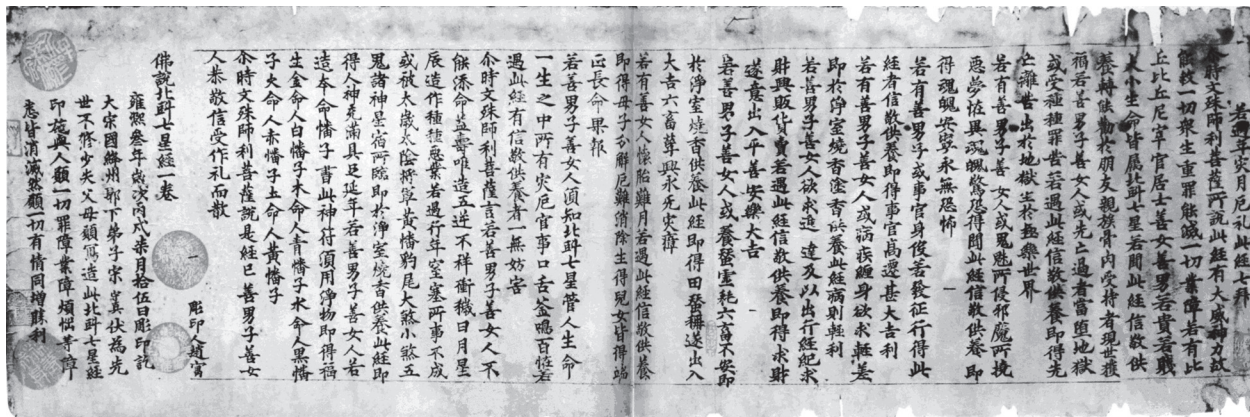 若遇年灾月厄礼此經七拜
尒時文殊師利菩薩所說此經有大威神力故
能救一切衆生重罪能滅一切業障若有比
丘比丘尼宰官居士善女善男若貴若賤
大小生命皆属北斗七星若聞此經信敬供
養轉使勸於朋友親族骨肉受持者現世獲
福若善男子善女人或先亡過者當墮地獄
或受種種罪苦若遇此經信敬供養即得先
亡離苦出於地獄生於極樂世界
若有善男子善女人或鬼魅所侵邪魔所撓
惡夢恠異魂魄驚恐得聞此經信敬供養即
得魂魄安寧永無恐怖
若有善男子或事官身俊若發征行得此
經者信敬供養即得事官高遷甚大吉利
若有善男子善女人或病疾纏身欲求輕差
即於淨室燒香塗香供養此經病則輕利
若善男子善女人欲求進達及以出行經紀求
財興販貨賣若遇此經信敬供養即得求財
遂意出入平善安樂大吉
若善男子善女人或養蠶虛耗六畜不安即
於淨室燒香供養此經即得田蠶稱遂出入
大吉六畜尊興永死灾瘴
若有善女人懷胎難月若遇此經信敬供養
即得母子分解厄難消除生得兒女皆得端
正長命果報
若善男子善女人須知北斗七星管人生命
一生之中所有灾厄官事口舌釜鳴百恠若
遇此經有信敬供養者一無妨害
尒時文殊師利菩薩言若善男子善女人不
能添命益壽唯造五逆不祥衝穢日月星
辰造作種種惡業若遇行年室塞所事不成
或被太歲太陰將軍黃幡豹尾大煞小煞五
鬼諸神星宿所臨即於淨室燒香供養此經即
得人神充滿具足延年若善男子善女人若
造本命幡子書此神符須用淨物即得福
生金命人白幡子木命人青幡子水命人黑幡
子火命人赤幡子土命人黃幡子
尒時文殊師利菩薩說是經已善男子善女
人恭敬信受作礼而散
彫印人趙
佛說北斗七星經一卷
雍熙叁年歲次丙戌柒月拾伍日彫印記
大宋國絳州鄉下弟子宗伏為先
世不修少失父母願寫造此北斗七星經
印施與人願一切罪障業障煩惱等障
悉皆消滅然願一切有情同增勝利